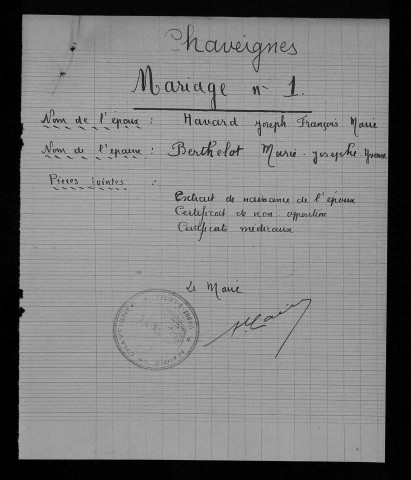 Chaveignes
Mariage n° 1.
Nom de l'époux : Havard Joseph François Marie
Nom de l'épouse : Berthelot Marie-Josephe-Yvonne
Pièces jointes :
Extrait de naissance de l'époux
Certificat de non opposition
Certificats médicaux
Le Maire